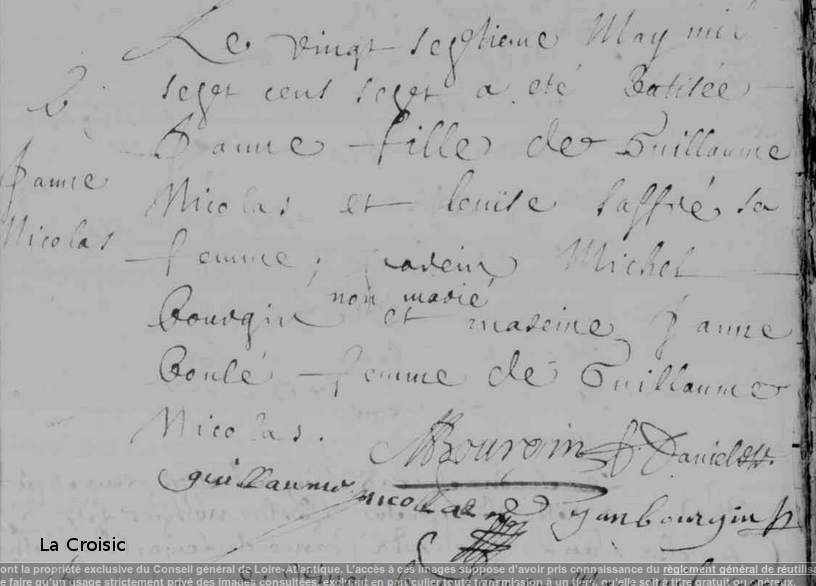 Le vingt septieme May mil
sept cens sept a eté Batisée
B.
Janne fille de Guillaume
Janne
Nicolas et louise saffré sa
Nicolas
femme, parein Michel
non marié
Bourgin et mareine Janne
Boulé femme de Guillaume
Nicolas.
MBourgin Daniel
guillaume nicollas yanbourgin
Le Croisic
ont la propriété exclusive du Conseil général de Loire-Atlantique. L'accès à ces images suppose d'avoir pris connaissance du règlement général de réutilis
e faire qu'un usage strictement privé des images consultées, excluant en particulier toute transmission à un tiers, qu'elle soit à titre gratuit ou onéreux.